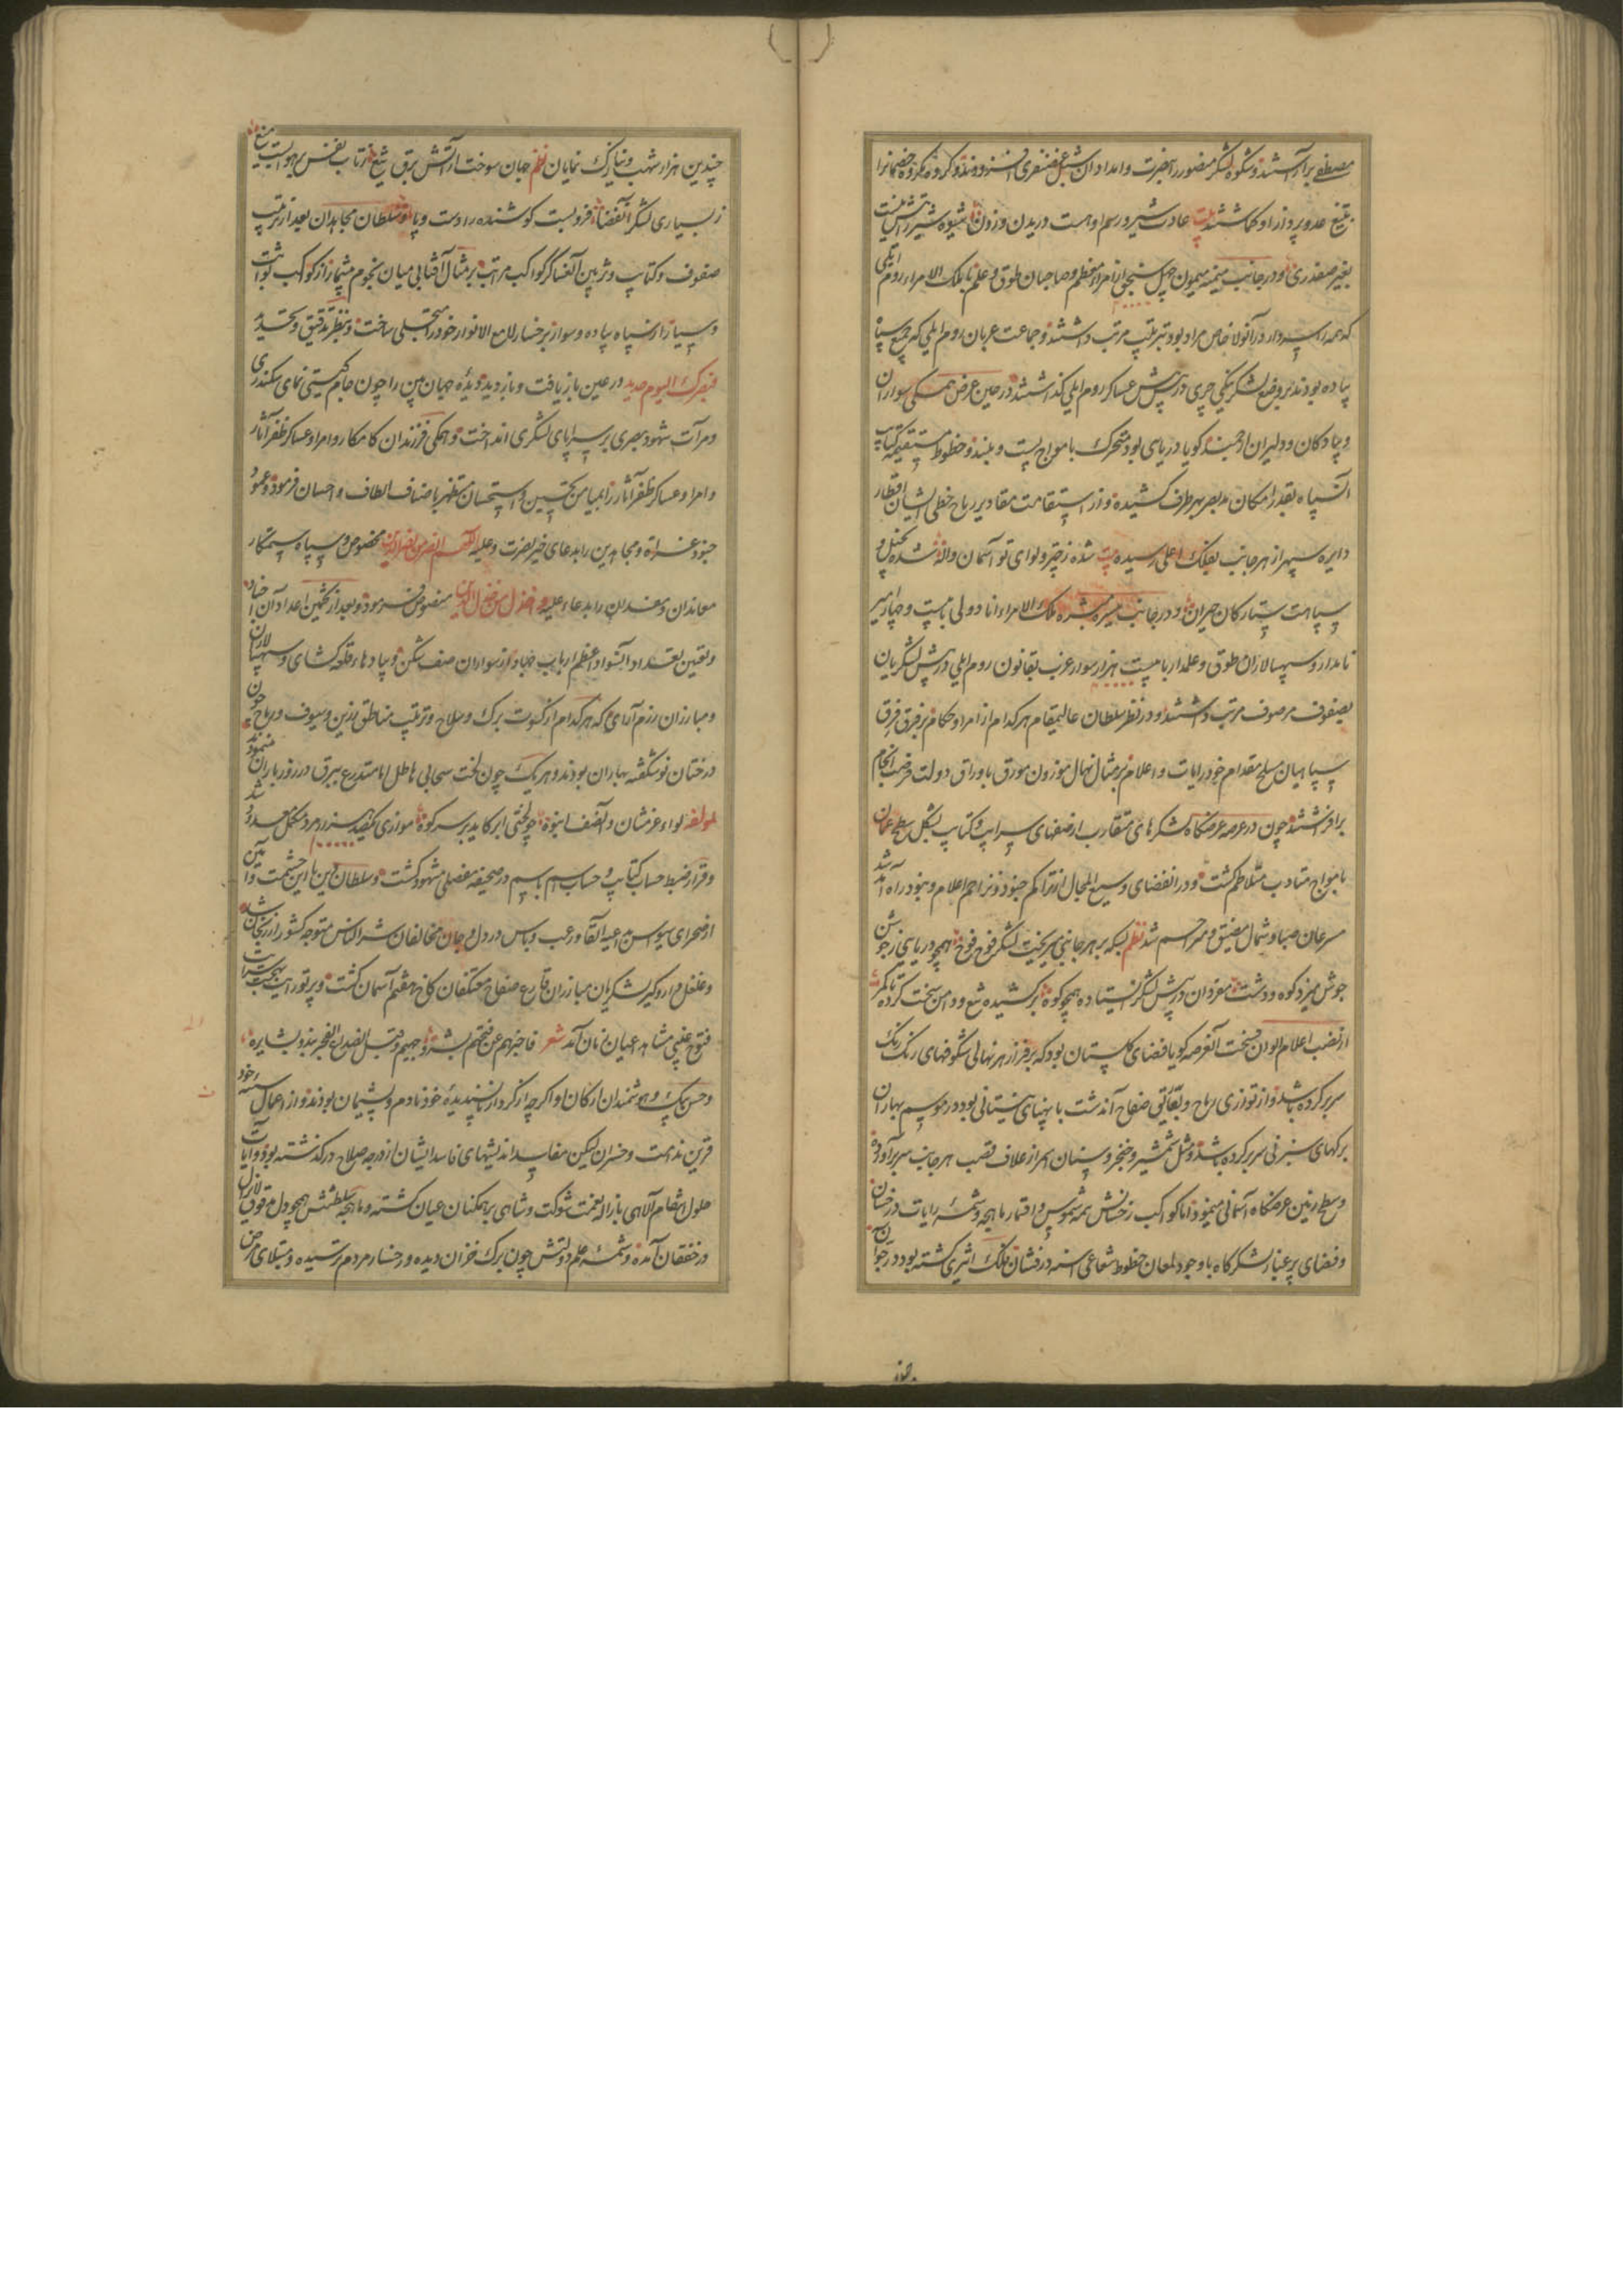 مصطفی برآراستند و شکوه لشکر منصور را بحضرت و امداد آن شبل غضنفری افزودند و گروه گروه خصمانرا
بتیغ عدو پرداز او گماشتند بیت عادت شیر و رسم او هست دریدن و زدن شیوه شیر
بغیر صفدری و در جانب میمنه میمون چهل سنجق از امراء معظم و صاحبان طوق و علم با ملک الامراء روم ایلی
که همراه در آنولا خاص مراد بود بترتیب مرتب داشتند و جماعت عزبان روم ایلی که جمیع سپاه
پیاده بودند بر وضع لشکر ینکی چری در پیش عساکر روم ایلی گذاشتند در حین عرض همگی سواران
و پیادگان و دلیران ارجمند گویا دریای بود متحرک با مواج پست و بلند و خطوط مستقیمه کتایب
آن سپاه بقدر امکان مد بصر بهر طرف کشیده و از استقامت مقادیر رماح خطی ایشان اقطار
دایره سپهر از هر جانب بفلک اعلی رسیده بیت شده ز چتر و لوای تو آسمان واله شده ز خیل و
سپاهت ستارگان حیران و در جانب میسره ملک الامراء اناطولی با بیست و چهار امیر
نامدار و سپهسالاران طوق و علمدار با بیست هزار سوار عزب بقانون روم ایلی در پیش لشکریان
بصفوف مرصوف مرتب داشتند و در نظر سلطان عالیمقام هر کدام از امرا و حکام بر فرق فرق
سپاهیان مسلح مقدام خود رایات و اعلام بر مثال نهال موزون مورق باوراق دولت فرصت انجام
برافراشتند چون در عرصه عرضگاه لشکرهای متقارب از صفهای سراپ و کتایب بشکل سطح عمان
بامواج متادب متلاطم گشت و در انفضای وسیع المجال از تراکم جنود و تزاحم اعلام و بنود راه آمد شد
مسرعان صبا و شمال مضیق و مزاحم شد نظم بسکه بر هر جانبی میریخت لشکر فوج فوج همچو دریایی ز جوشش
جوش میزد کوه و دشت مفردان در پیش لشکر ایستاده همچو کوه برکشیده تیغ و دامن سخت کرده تا کمر
از نصب اعلام الوان فسحت آنعرصه گویا فضای گلستان بود که بر فراز هر نهالی شکوفهای رنک رنک
سر بر کرده باشد و از توازی رماح و بقایق صفاح آندشت با پهنای نیستانی بود در موسم بهاران
برگهای سبز نی سر بر کرده باشد و مثل شمشیر و خنجر و سنان احمر از غلاف قصب هر جانب سر بر آورده
و سطح زمین عرضگاه آسمانی مینمود اما کواکب رخشانش همه شموس و اقمار ماهچه و شمسه رایات درخشان
و فضای پر غبار لشکرگاه با وجود لمعان خطوط شعاعی اسنه درفشان فلک اثیری گشته بود در
چندین هزار شهب و نیازک نمایان نظم جهان سوخت از آتش برق تیغ
ز بسیاری لشکر آنفضا فرو بست کوشنده را دست و پا و سلطان مجاهدان بعد از ترتیب
صفوف و کتایب و تزیین آنعساکر کواکب مراتب بر مثال آفتابی میان نجوم متمایز از کواکب ثوابت
و سیار از سپاه پیاده و سوار بر خسار لامع الانوار خود را متجلی ساخت و بنظر تدقیق و تحدید
فبصرک الیوم حدید در عین بازیافت و بازدید دیده جهان بین را چون جام گیتی نمای سکندری
و مرآت شهود بصری بر سراپای لشکری انداخت و همگی فرزندان کامکار و امراء و عساکر ظفر آثار
و امراء و عساکر ظفر آثار را بمیامن تحسین و استحسان مستظهر باصناف الطاف و احسان فرمود و عموم
جنود غزاة و مجاهدین را بدعای خیر نصرت و علیه اللهم انصر من نصر الدین مخصوص و سپاه ستمکار
معاندان و مفسدان را بدعاء علیه و اخذل من خذل الدین منصوص فرمود و بعد از تخمین اعداد آن اجناد
و تعیین تعداد آنسواد اعظم ارباب جهاد از سواران صف شکن و پیادهاء قلعه گشای و سپهسالاران
و مبارزان رزم آرای که هر کدام از کسوت برک و سلاح و ترتیب مناطق زرین و سیوف و رماح چون
درختان نوشکفته بهاران بودند و هر یک چون لخت سحابی هاطل اما متدرع ببرق در روز باران مینمودند
لمولفه لواء عز شان و آنصف انبوه چو لختی ابر کاید بر سر کوه موازی یکصد هزار مرد مکمل معدود شد
و قرار ضبط حساب کتایب و حساب اسم باسم در صحیفه مفصلی مشهود گشت و سلطان دین با این حشمت و آیین
از صحرای سیواس من عید القاء رعب و باس در دل و جان مخالفان شر الناس متوجه کشور ارزنجان شد
و غلغل دار و گیر لشکریان مبارزان قارع صفاح معتکفان کاخ نهم آسمان گشت و پرتو رایت بهجت سرایت
فتوح غیبی مشاهد اعیان زمان آمد شعر فاخبرهم عن فتحهم بشر وجهیم و قبل انصداع الفجر یبدو بشایره
و حسن بیک و هوشمندان ارکان او اگرچه از کردار ناپسندیده خود نادم و پشیمان بودند و از اعمال سیئه خود
قرین ندامت و خسران لیکن مفاسد اندیشهای فاسد ایشان از درجه صلاح درگذشته بود و آیات
حلول انتقام الهی بازاله نعمت شوکت و شاهی بر همگنان عیان گشته و ماهچه سلطنتش همچو دل مدقوق لرزان
در خفقان آمده و شمسه علم دولتش چون برک خزان دیده و رخسار مردم ترسیده و مبتلای مرض